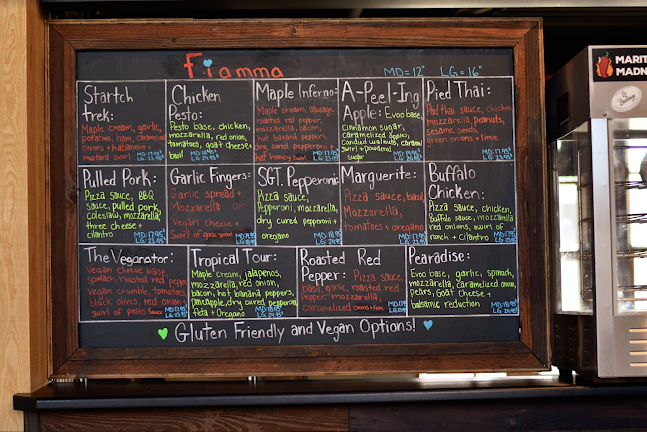 Fiamma
MD = 12" LG = 16"
Startch
Trek:
Maple cream, garlic,
potatoes, ham, caramelized
onions + habanero +
mustard swirl
Chicken
Pesto:
Pesto base, chicken,
mozzarella, red onion,
tomatoes, goat cheese +
basil
Maple Inferno:
Maple cream, sausage,
roasted red pepper,
mozzarella, bacon,
hot banana pepper,
dry cured pepperoni +
hot honey swirl
A-Peel-Ing
Apple: Evoo base,
cinnamon sugar,
caramelized apples,
candied walnuts, caramel
swirl + powdered
sugar
Pied Thai:
Pad thai sauce, chicken,
mozzarella, peanuts,
sesame seeds,
green onions + lime
Pulled Pork:
Pizza sauce, BBQ
sauce, pulled pork,
coleslaw, mozzarella,
three cheese +
cilantro
Garlic Fingers:
Garlic spread +
Mozzarella or
Vegan cheese +
Swirl of garlic spread
SGT. Pepperoni:
Pizza sauce,
Pepperoni, mozzarella,
dry cured pepperoni +
oregano
Marguerite:
Pizza sauce, basil
Mozzarella,
tomatoes + oregano
Buffalo
Chicken:
Pizza sauce, chicken,
Buffalo sauce, mozzarella
red onions, swirl of
ranch + cilantro
The Veganator:
Vegan cheese base,
spinach, roasted red pepper
vegan crumble, tomatoes,
black olives, red onion +
swirl of pesto sauce
Tropical Tour:
Maple cream, jalapenos,
mozzarella, red onion,
bacon, hot banana peppers,
pineapple, dry cured pepperoni,
feta + oregano
Roasted Red
Pepper: Pizza sauce,
basil, garlic, roasted red
pepper, mozzarella,
caramelized onions + feta
Pearadise:
Evoo base, garlic, spinach,
mozzarella, caramelized onion,
pears, goat cheese +
balsamic reduction
Gluten Friendly and Vegan Options!
MARIT
MADN